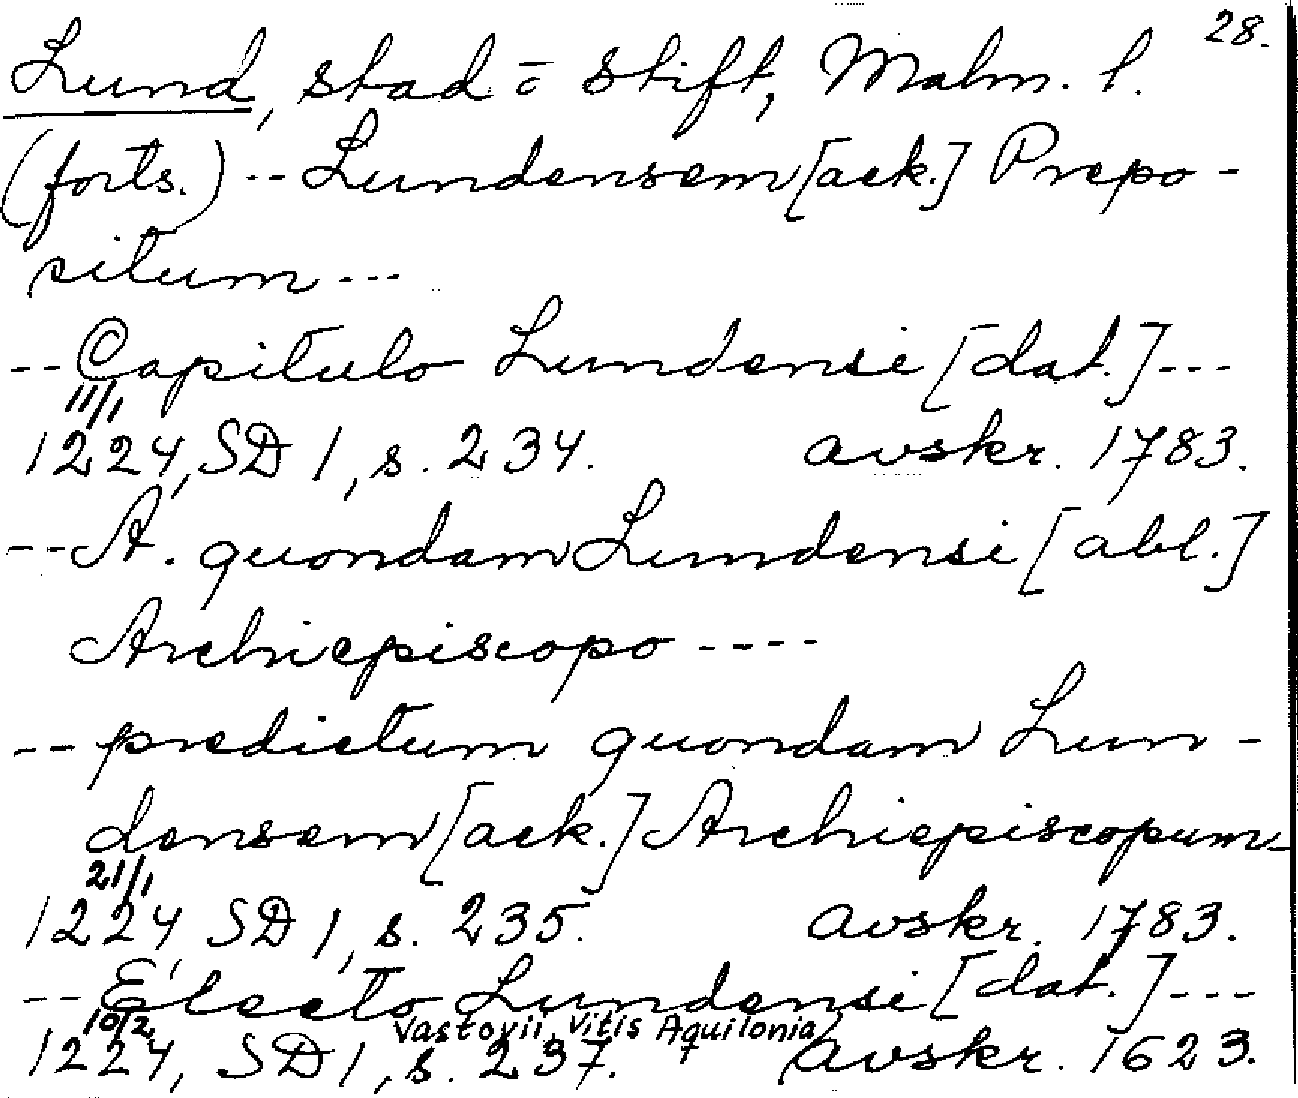 28.
Lund, stad o stift, Malm. l.
(forts.) -- Lundensem [ack.] Prepo-
situm ---
-- Capitulo Lundensi [dat.] ---
11/1
1224, SD 1, s. 234. avskr. 1783.
-- A. quondam Lundensi [abl.]
Archiepiscopo ----
-- predictum quondam Lun-
densem [ack.] Archiepiscopum-
21/1
1224, SD 1, s. 235. avskr. 1783.
-- Electo Lundensi [dat.] ---
10/2 Vastovii, Vitis Aquilonia
1224, SD 1, s. 237. avskr. 1623.